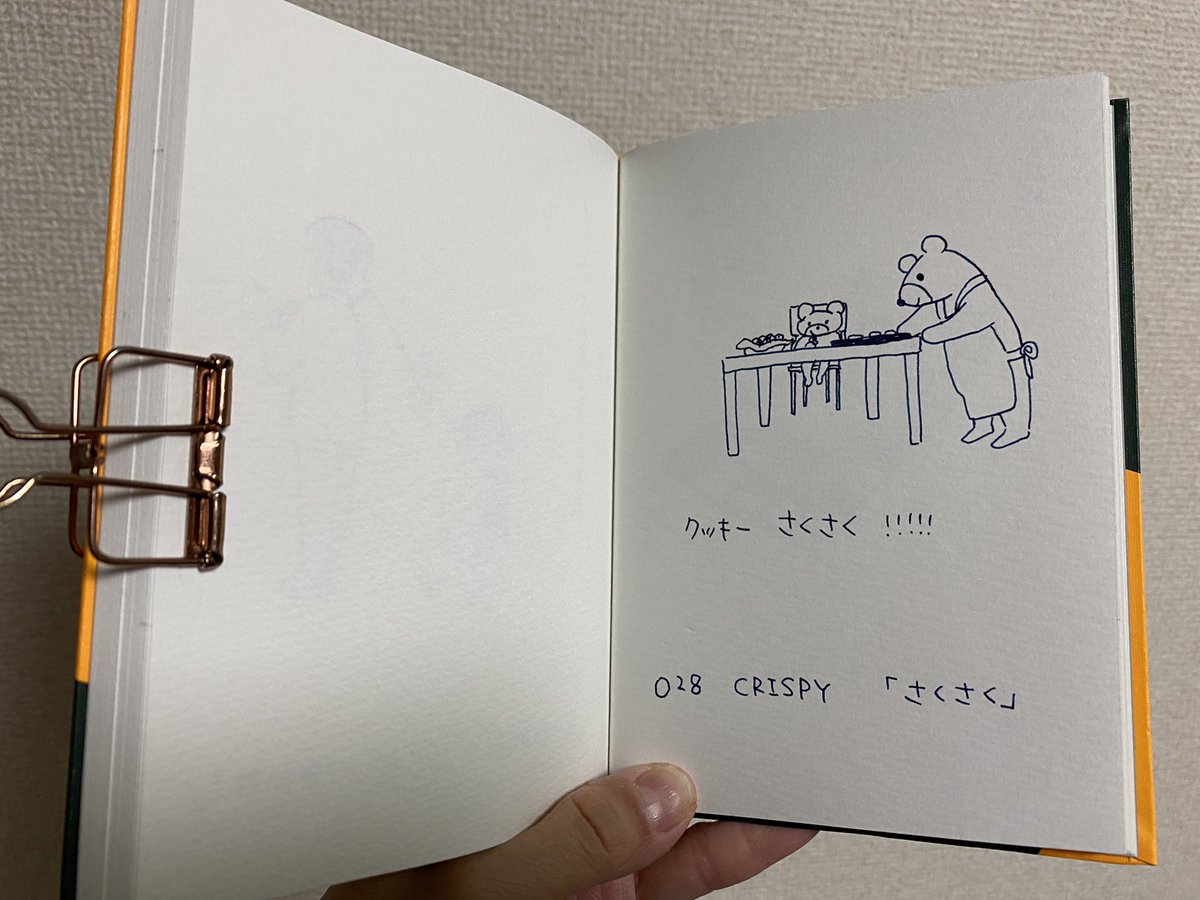 クッキー さくさく !!!!!
028 CRISPY 「さくさく」